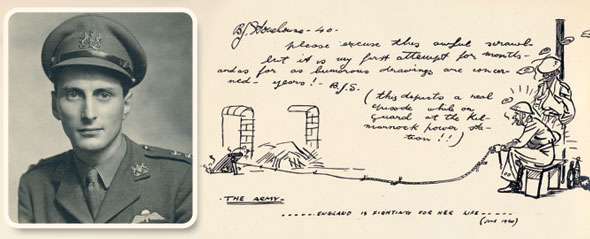 B.J. Stonehouse - 40 -
please excuse this awful scrawl
but it is my first attempt for months -
and as for as humorous drawings are concer-
ned - years! - B.J.S.
(this depicts a real
episode while on
guard at the Kil-
marnock power sta-
tion!!)
THE ARMY -
ENGLAND IS FIGHTING FOR HER LIFE
(June 1940)